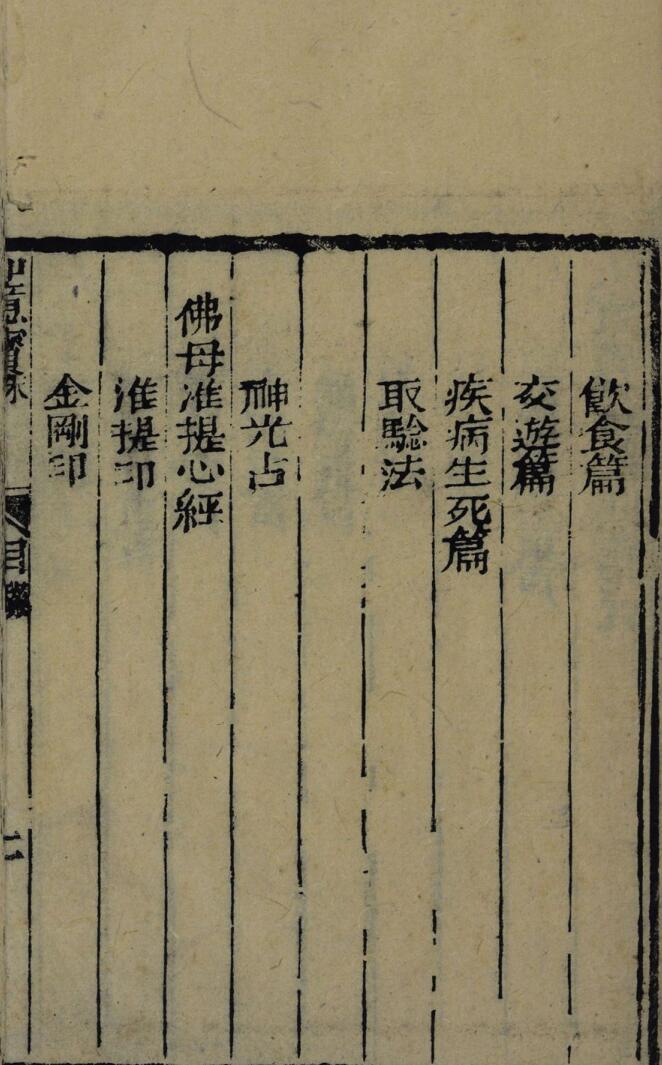 飲食篇
交遊篇
疾病生死篇
取驗法
神光占
佛母准提心經
准提印
金剛印
目錄